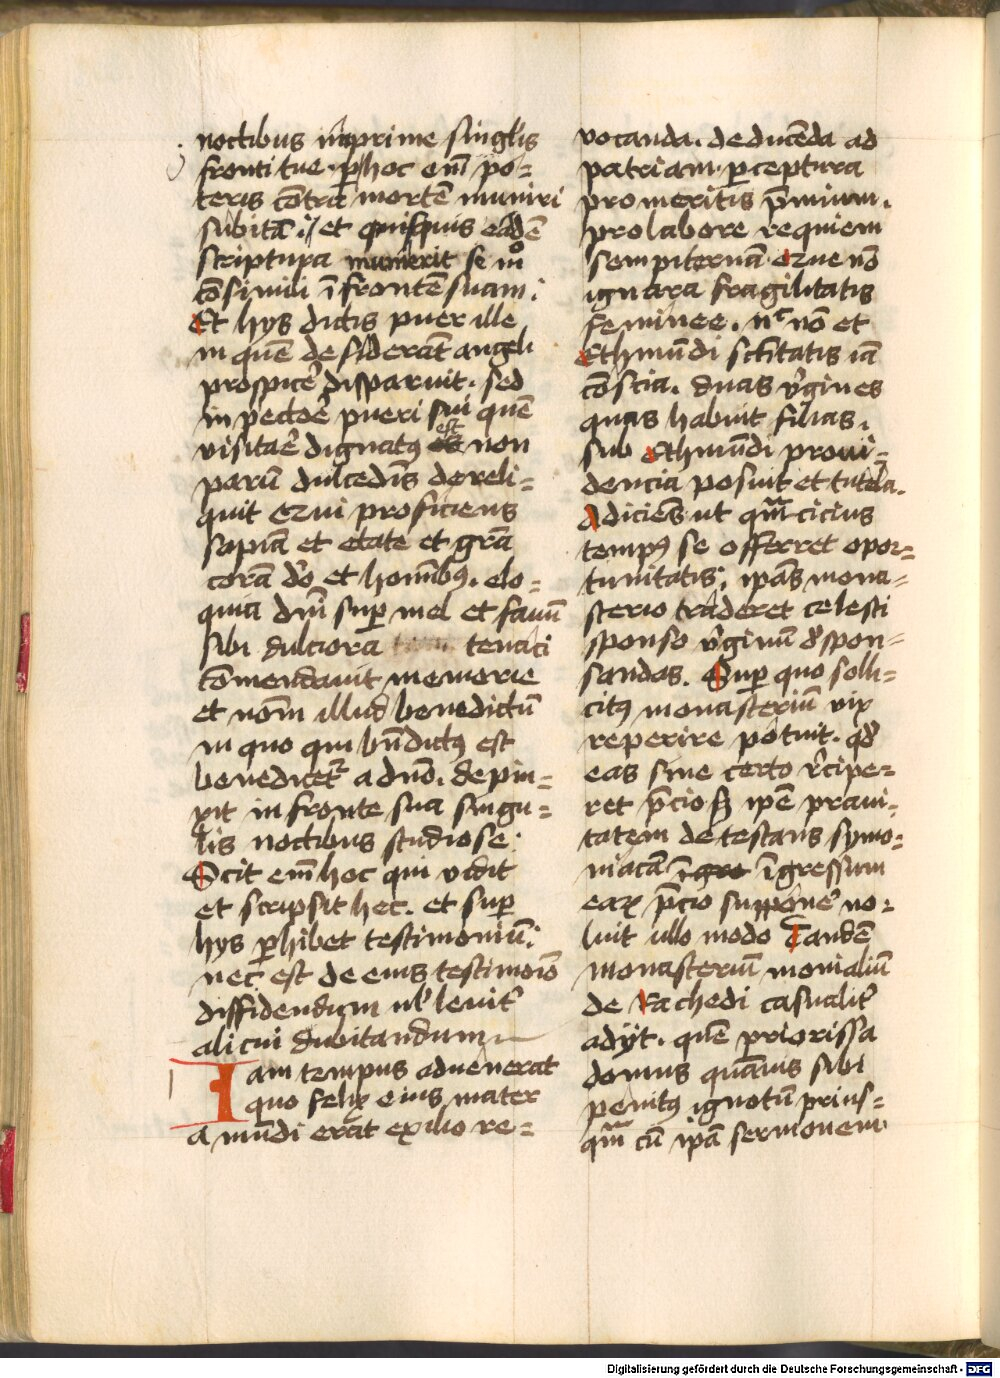 noctibus inprime singl'is
fronti tue · p hoc em̅ po=
teris co̅tra morte̅ muniri
subita̅ ; et quisquis eade̅
scriptura munierit se mo
co̅simili i̅ fronte̅ suam ;
Et hys dictis puer ille
in que̅ desidera̅t angeli
prospice̅ disparuit . sed
in pectoe̅ pueri sui que̅
visitae̅ dignatꝰ est non
paru̅ dulcedi̅s dereli=
quit eꝛui proficiens
sapia̅ et etate et gra̅
cora̅ do̅ et homi̅bꝰ . elo=
quia dn̅i sup mel et fauu̅
sibi dulciora tenaci
co̅mendauit memorie
et nom̅ illud benedictu̅
in quo qui bn̅dictꝰ est
benedicetᷣ a dn̅o . depin=
xit in fronte sua singu=
lis noctibus studiose ;
Scit em̅ hoc qui vidit
et scripsit hec . et sup
hys phibet testimoniu̅ ;
nec est de eius testimoi̅o
diffidendum ul' leuit'
alicui dubitandum
Iam tempus aduenerat
quo felix eius mater
a mu̅di erat exilio re=
vocanda . deduce̅da ad
patriam · pceptura
pro meritis p̅mium .
pro labore requiem
sempiterna̅ · eꝛue no̅
ignara fragilitatis
feminee . nᶜ no̅ et
Ethmu̅di sc̅titatis ia̅
co̅scia . duas v'gines
quas habuit filias .
sub Ethmu̅di proui=
dencia posuit et tutela .
Adicie̅s ut qm̅ cicius
tempꝰ se offerret opor=
tunitatis ; ipa̅s mona=
sterio traderet celesti
sponso v'ginu̅ d'spon=
sandas . Sup quo solli=
citꝰ monasteriu̅ vix
reperire potuit . qd'
eas sine certo r'cipe=
ret p̅cio ꝫ ipe̅ praui=
tatem detestans symo=
niaca̅ i̅gre i̅gressum
eaꝝ p̅cio suppone̅ no=
luit ullo modo Tande̅
monasteriu̅ monialiu̅
de kachedi casualit'
adijt . que̅ priorissa
domus qua̅uis sibi
penitꝰ ignotu̅ prius=
qm̅ cu̅ ipa̅ sermonem
Digitalisierung gefördert durch die Deutsche Forschungsgemeinschaft - DFG